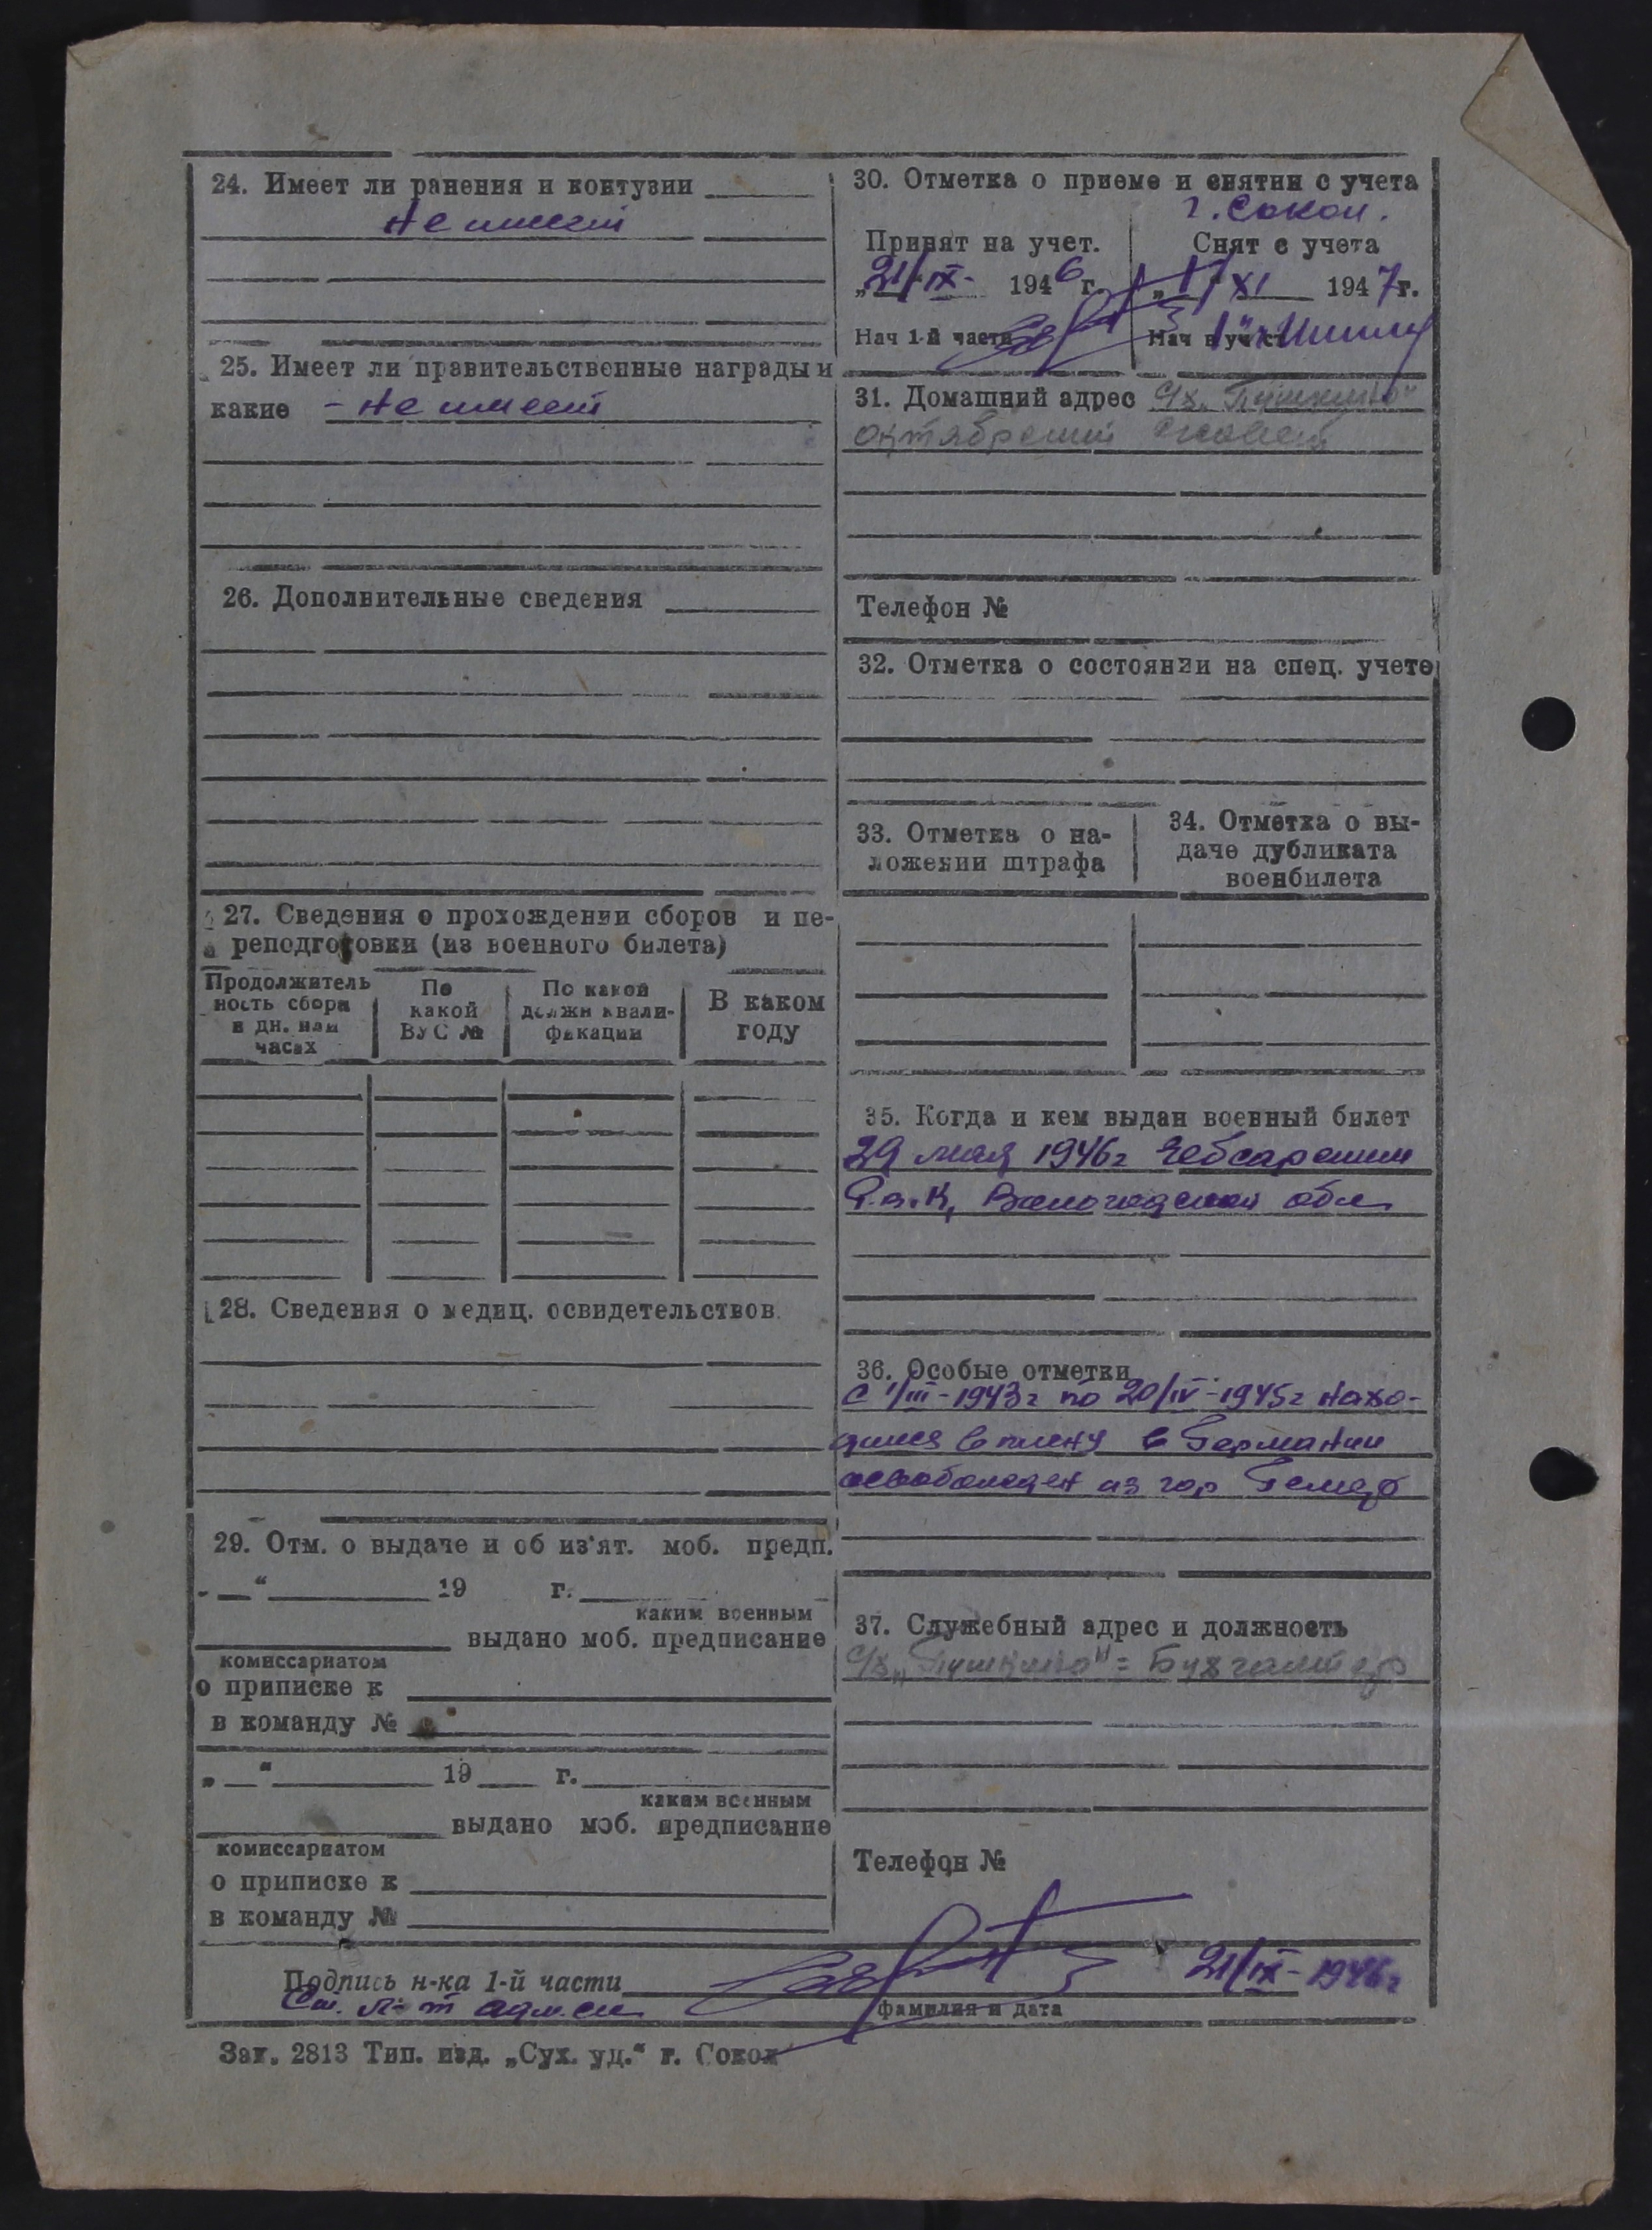 24. Имеет ли ранения и контузии
Не имеет
25. Имеет ли правительственные награды и
какие - Не имеет
26. Дополнительные сведения
27. Сведения о прохождении сборов и пе-
реподготовки (из военного билета)
Продолжитель
ность сбора
в дн. или
часах
По
какой
ВУС №
По какой
должн квали-
фикации
В каком
году
28. Сведения о медиц. освидетельствов.
29. Отм. о выдаче и об из'ят. моб. предп.
„ “ 19 г.
каким военным
выдано моб. предписание
комиссариатом
о приписке к
в команду №
„ “ 19 г.
каким военным
выдано моб. предписание
комиссариатом
о приписке к
в команду №
30. Отметка о приеме и снятии с учета
г. Сокол.
Принят на учет.
„21/IX- 1946 г.
Нач 1-й части
Снят с учета
„17 XI 1947г.
Нач
31. Домашний адрес с/х. „Пушкино“
октябрьский с/совет
Телефон №
32. Отметка о состоянии на спец. учете
33. Отметка о на-
ложении штрафа
34. Отметка о вы-
даче дубликата
военбилета
35. Когда и кем выдан военный билет
29 мая 1946г Чебсарским
Р.в.К, Вологодской обл
36. Особые отметки
с 1/III-1943г по 20/IV-1945г нахо-
дился в плену в Германии
освобожден из гор
37. Служебный адрес и должность
с/х „Пушкино“ = Бухгалтер
Телефон №
Подпись н-ка 1-й части 21/IX-1946г
Ст. л-т адм.сл фамилия и дата
Зак. 2813 Тип. изд. „Сух. уд.“ г. Сокол